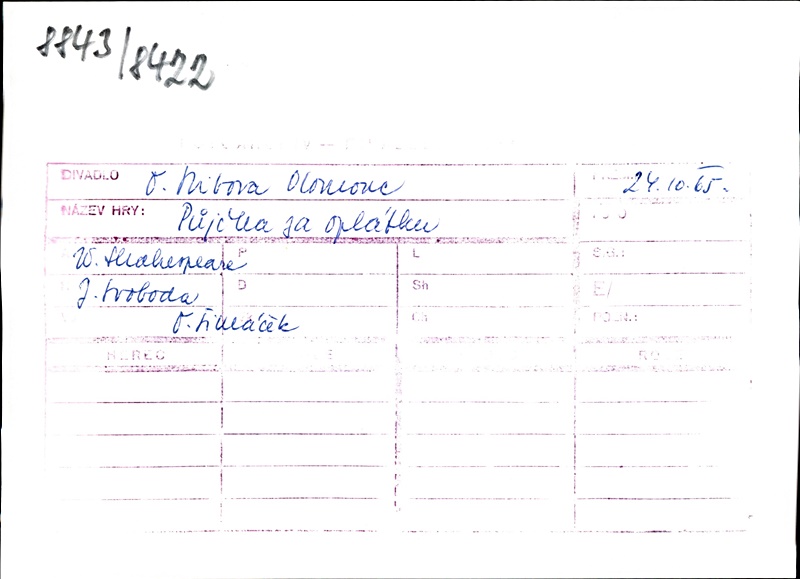 8843/8422
DIVADLO O. Stibora Olomouc 24.10.65.
NÁZEV HRY: Půjčka za oplátku
W. Shakespeare P L S.G.:
J. Svoboda D Sh E/
O. Šimáček Ch
HEREC RO